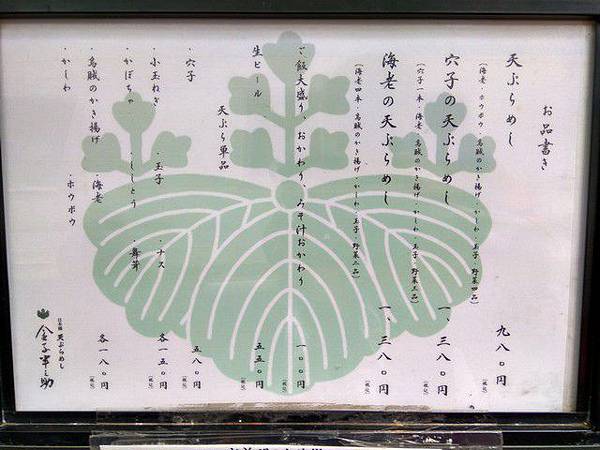 お品書き
天ぷらめし 九八〇円
(海老・ホウボウ・烏賊のかき揚げ・かしわ・玉子・野菜四品) (税込)
穴子の天ぷらめし 一、三八〇円
(穴子一本・海老・烏賊のかき揚げ・かしわ・玉子・野菜三品) (税込)
海老の天ぷらめし 一、三八〇円
(海老四本・烏賊のかき揚げ・かしわ・玉子・野菜二品) (税込)
ご飯大盛り、おかわり、みそ汁おかわり 一〇〇円
(税込)
生ビール 五五〇円
(税込)
天ぷら単品
・穴子 五八〇円
(税込)
・小玉ねぎ ・玉子 ・ナス 各一五〇円
(税込)
・かぼちゃ ・ししとう ・舞茸
・烏賊のかき揚げ ・海老 各一八〇円
(税込)
・かしわ ・ホウボウ
日本橋 天ぷらめし
金子半之助